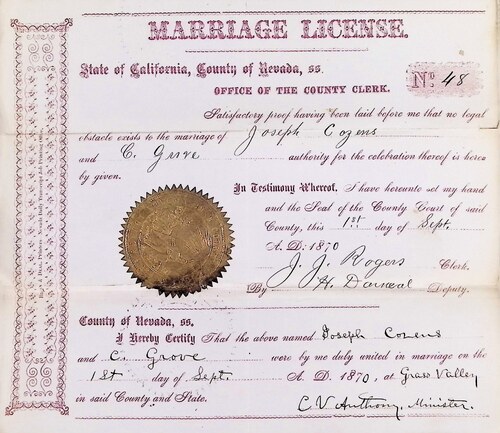 MARRIAGE LICENSE.
State of California, County of Nevada, ss.
OFFICE OF THE COUNTY CLERK.
No. 48
Satisfactory proof having been laid before me that no legal
obstacle exists to the marriage of Joseph Cozens
and C. Grove authority for the celebration thereof is hereby
by given.
In Testimony Whereof, I have hereunto set my hand
and the Seal of the County Court of said
County, this 1st day of Sept.
A. D. 1870
J. J. Rogers Clerk.
By H. Deputy.
County of Nevada, ss.
I Hereby Certify That the above named Joseph Cozens
and C. Grove were by me duly united in marriage on the
1st day of Sept. A. D. 1870, at Grass Valley
in said County and State.
C. V. Anthony, Minister.